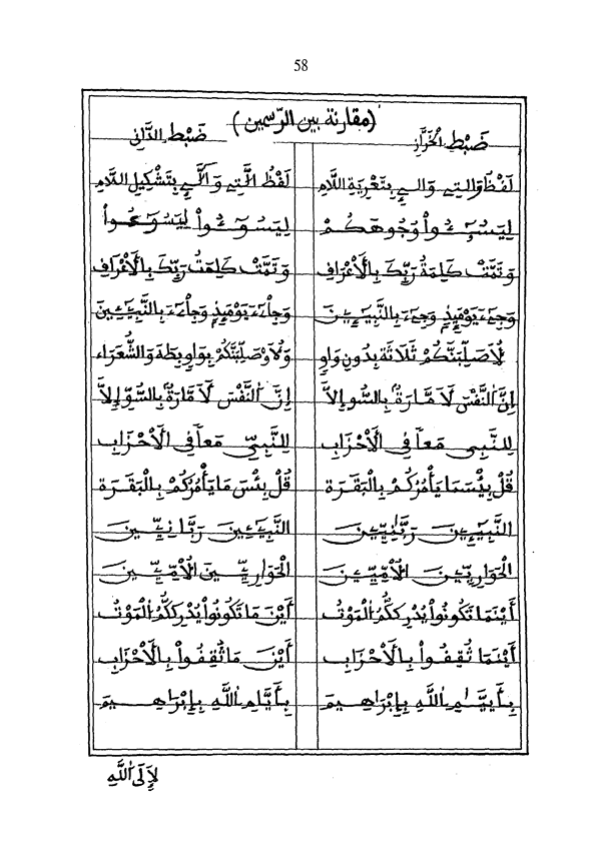 58
(مقارنة بين الرّسمين)
ضَبْط الخَرَّاز ضَبْط الدَّانِى
لَفْظُ وَالتِے وَالےِ بِتَعْرِيَةِ اللَّامِ لَفْظُ الَّتِے وَالَّےِ بِتَشْكِيلِ اللَّامِ
لِيَسُـۓـُٔواْ وُجُوهَكُمْ لِيَسُوٓـُٔواْ لِيَسُوٓءُواْ
وَتَمَّتْ كَلِمَةُ رَبِّكَ بِالْأَعْرَافِ وَتَمَّتْ كَلِمَتُ رَبِّكَ بِالْأَعْرَافِ
وَجِےءَ يَوْمَئِذٍ وَجِےءَ بِالنَّبِيٓـِٕينَ وَجِاْےٓءَ يَوْمَئِذٍ وَجِاْےٓءَ بِالنَّبِيٓـِٕينَ
لَأُصَلِّبَنَّكُمْ ثَلَاثَة بِدُونِ وَاوٍ وَلَأُوصَلِّبَنَّكُمْ بِوَاوٍ بِطَهَ وَالشُّعَرَاء
إِنَّ اَلنَّفْسَ لَأَمَّارَةُۢ بِالسُّوٓ إِلاَّ إِنَّ اَلنَّفْسَ لَأَمَّارَةُۢ بِالسُّوِّ إِلاَّ
لِلنَّبِىٓ مَعاً فِى الْأَحْزَابِ لِلنَّبِىِّ مَعاً فِى الْأَحْزَابِ
قُلْ بِئْسَمَا يَأْمُرُكُمْ بِالْبَقَرَةِ قُلْ بِئْسَ مَا يَأْمُرُكُمْ بِالْبَقَرَة
النَّبِيٓـِٕينَ رَبَّٰنِيِّينَ النَّبِيٓـِٕينَ رَبَّانِيِّينَ
الْحَوَارِيِّينَ الْأُمِّيِّينَ الْحَوَارِيِّينَ الْأُمِّيِّينَ
أَيْنَمَا تَكُونُواْ يُدْرِككُّمُ الْمَوْتُ أَيْنَ مَا تَكُونُواْ يُدْرِككُّمُ الْمَوْتُ
أَيْنَمَا ثُقِفُواْ بِالْأَحْزَابِ أَيْنَ مَا ثُقِفُواْ بِالْأَحْزَابِ
بِأَيَّىٰمِ اللَّهِ بِإِبْرَاهِيمَ بِأَيَّامِ اللَّهِ بِإِبْرَاهِيمَ
لَإِلَى اَللَّهِ